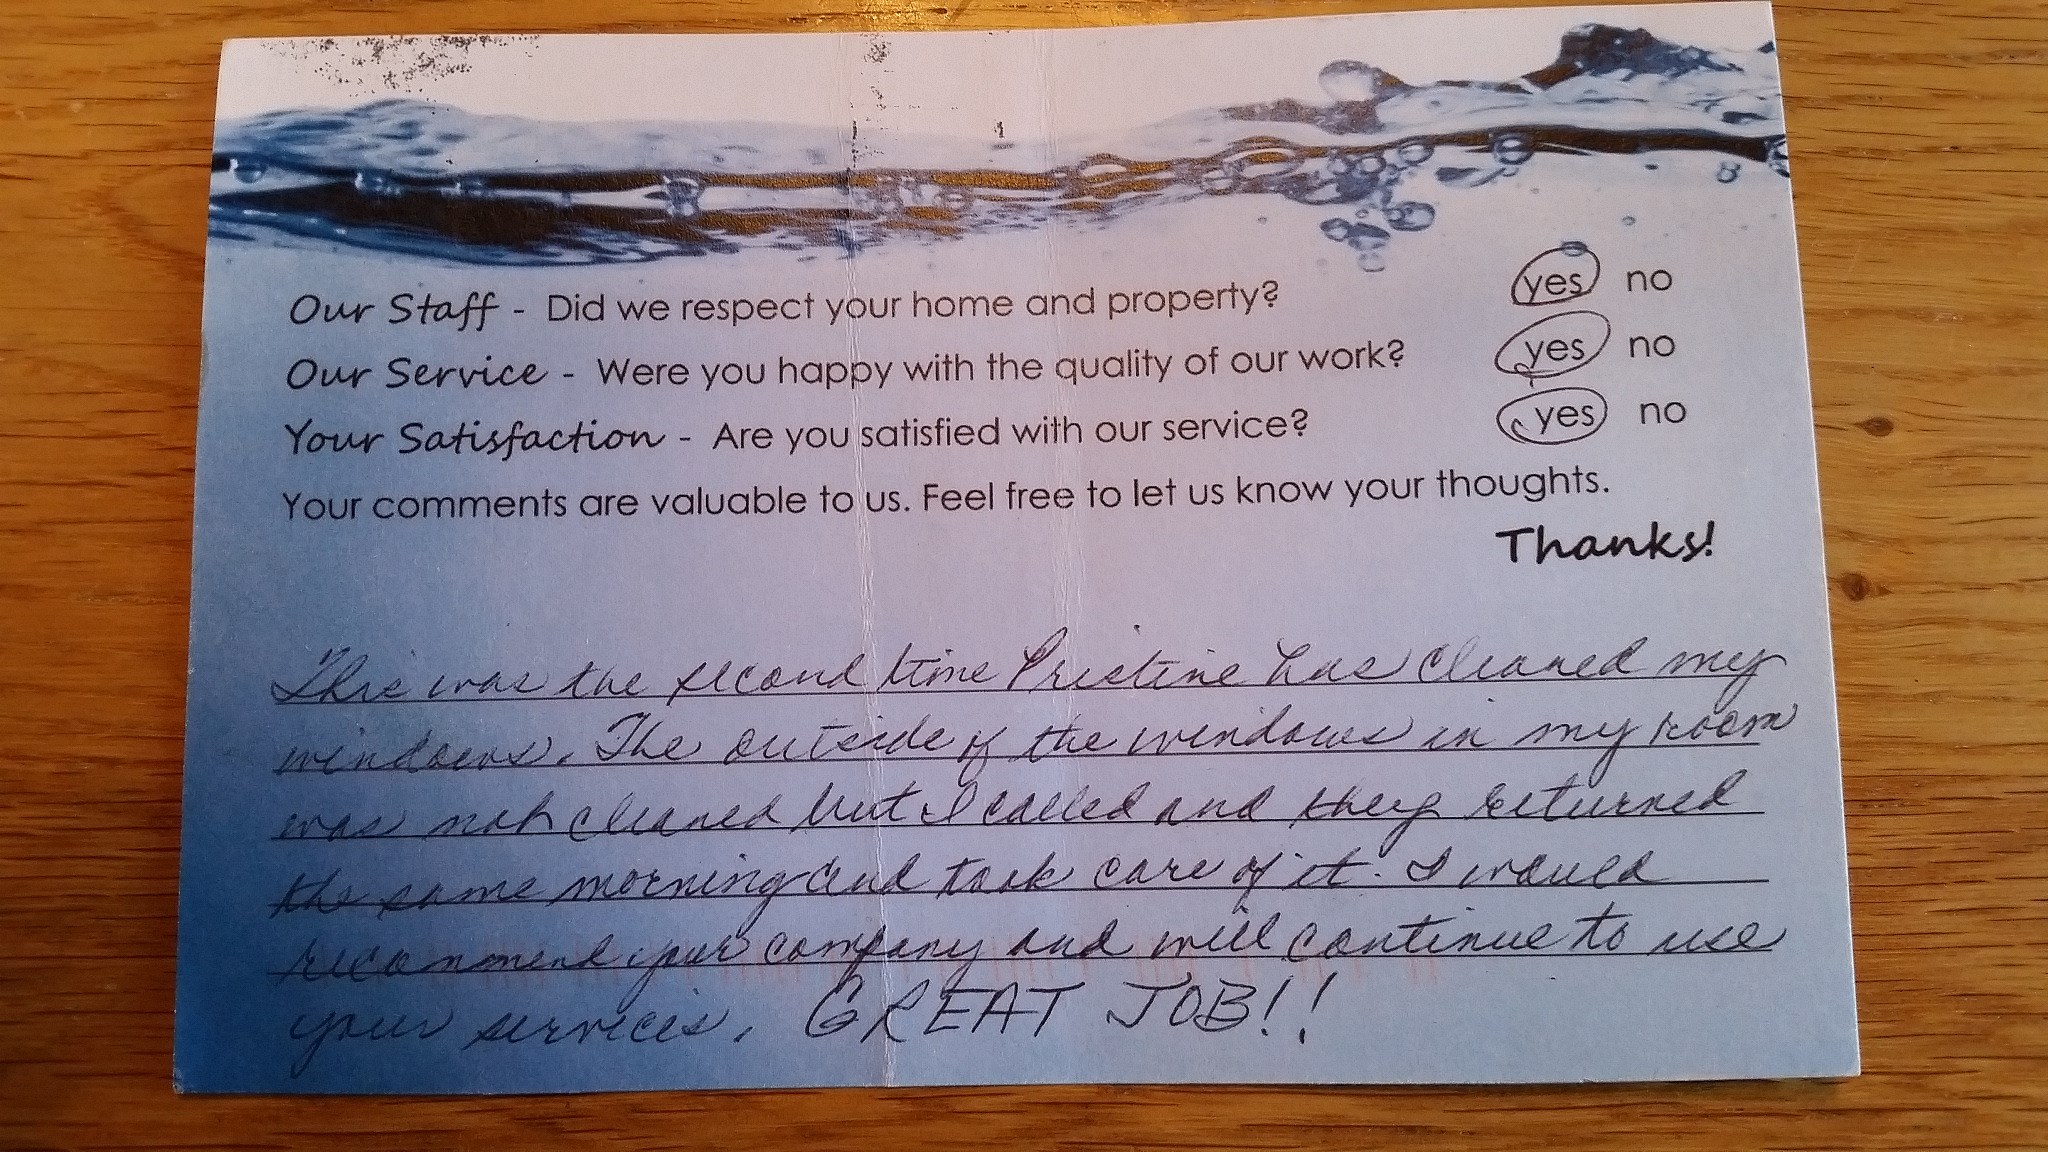 Our Staff - Did we respect your home and property? yes no
Our Service - Were you happy with the quality of our work? yes no
Your Satisfaction - Are you satisfied with our service? yes no
Your comments are valuable to us. Feel free to let us know your thoughts.
Thanks!
This was the second time Pristine has cleaned my
windows. The outside of the windows in my room
was not cleaned but I called and they returned
the same morning and took care of it. I would
recommend your company and will continue to use
your services. GREAT JOB!!